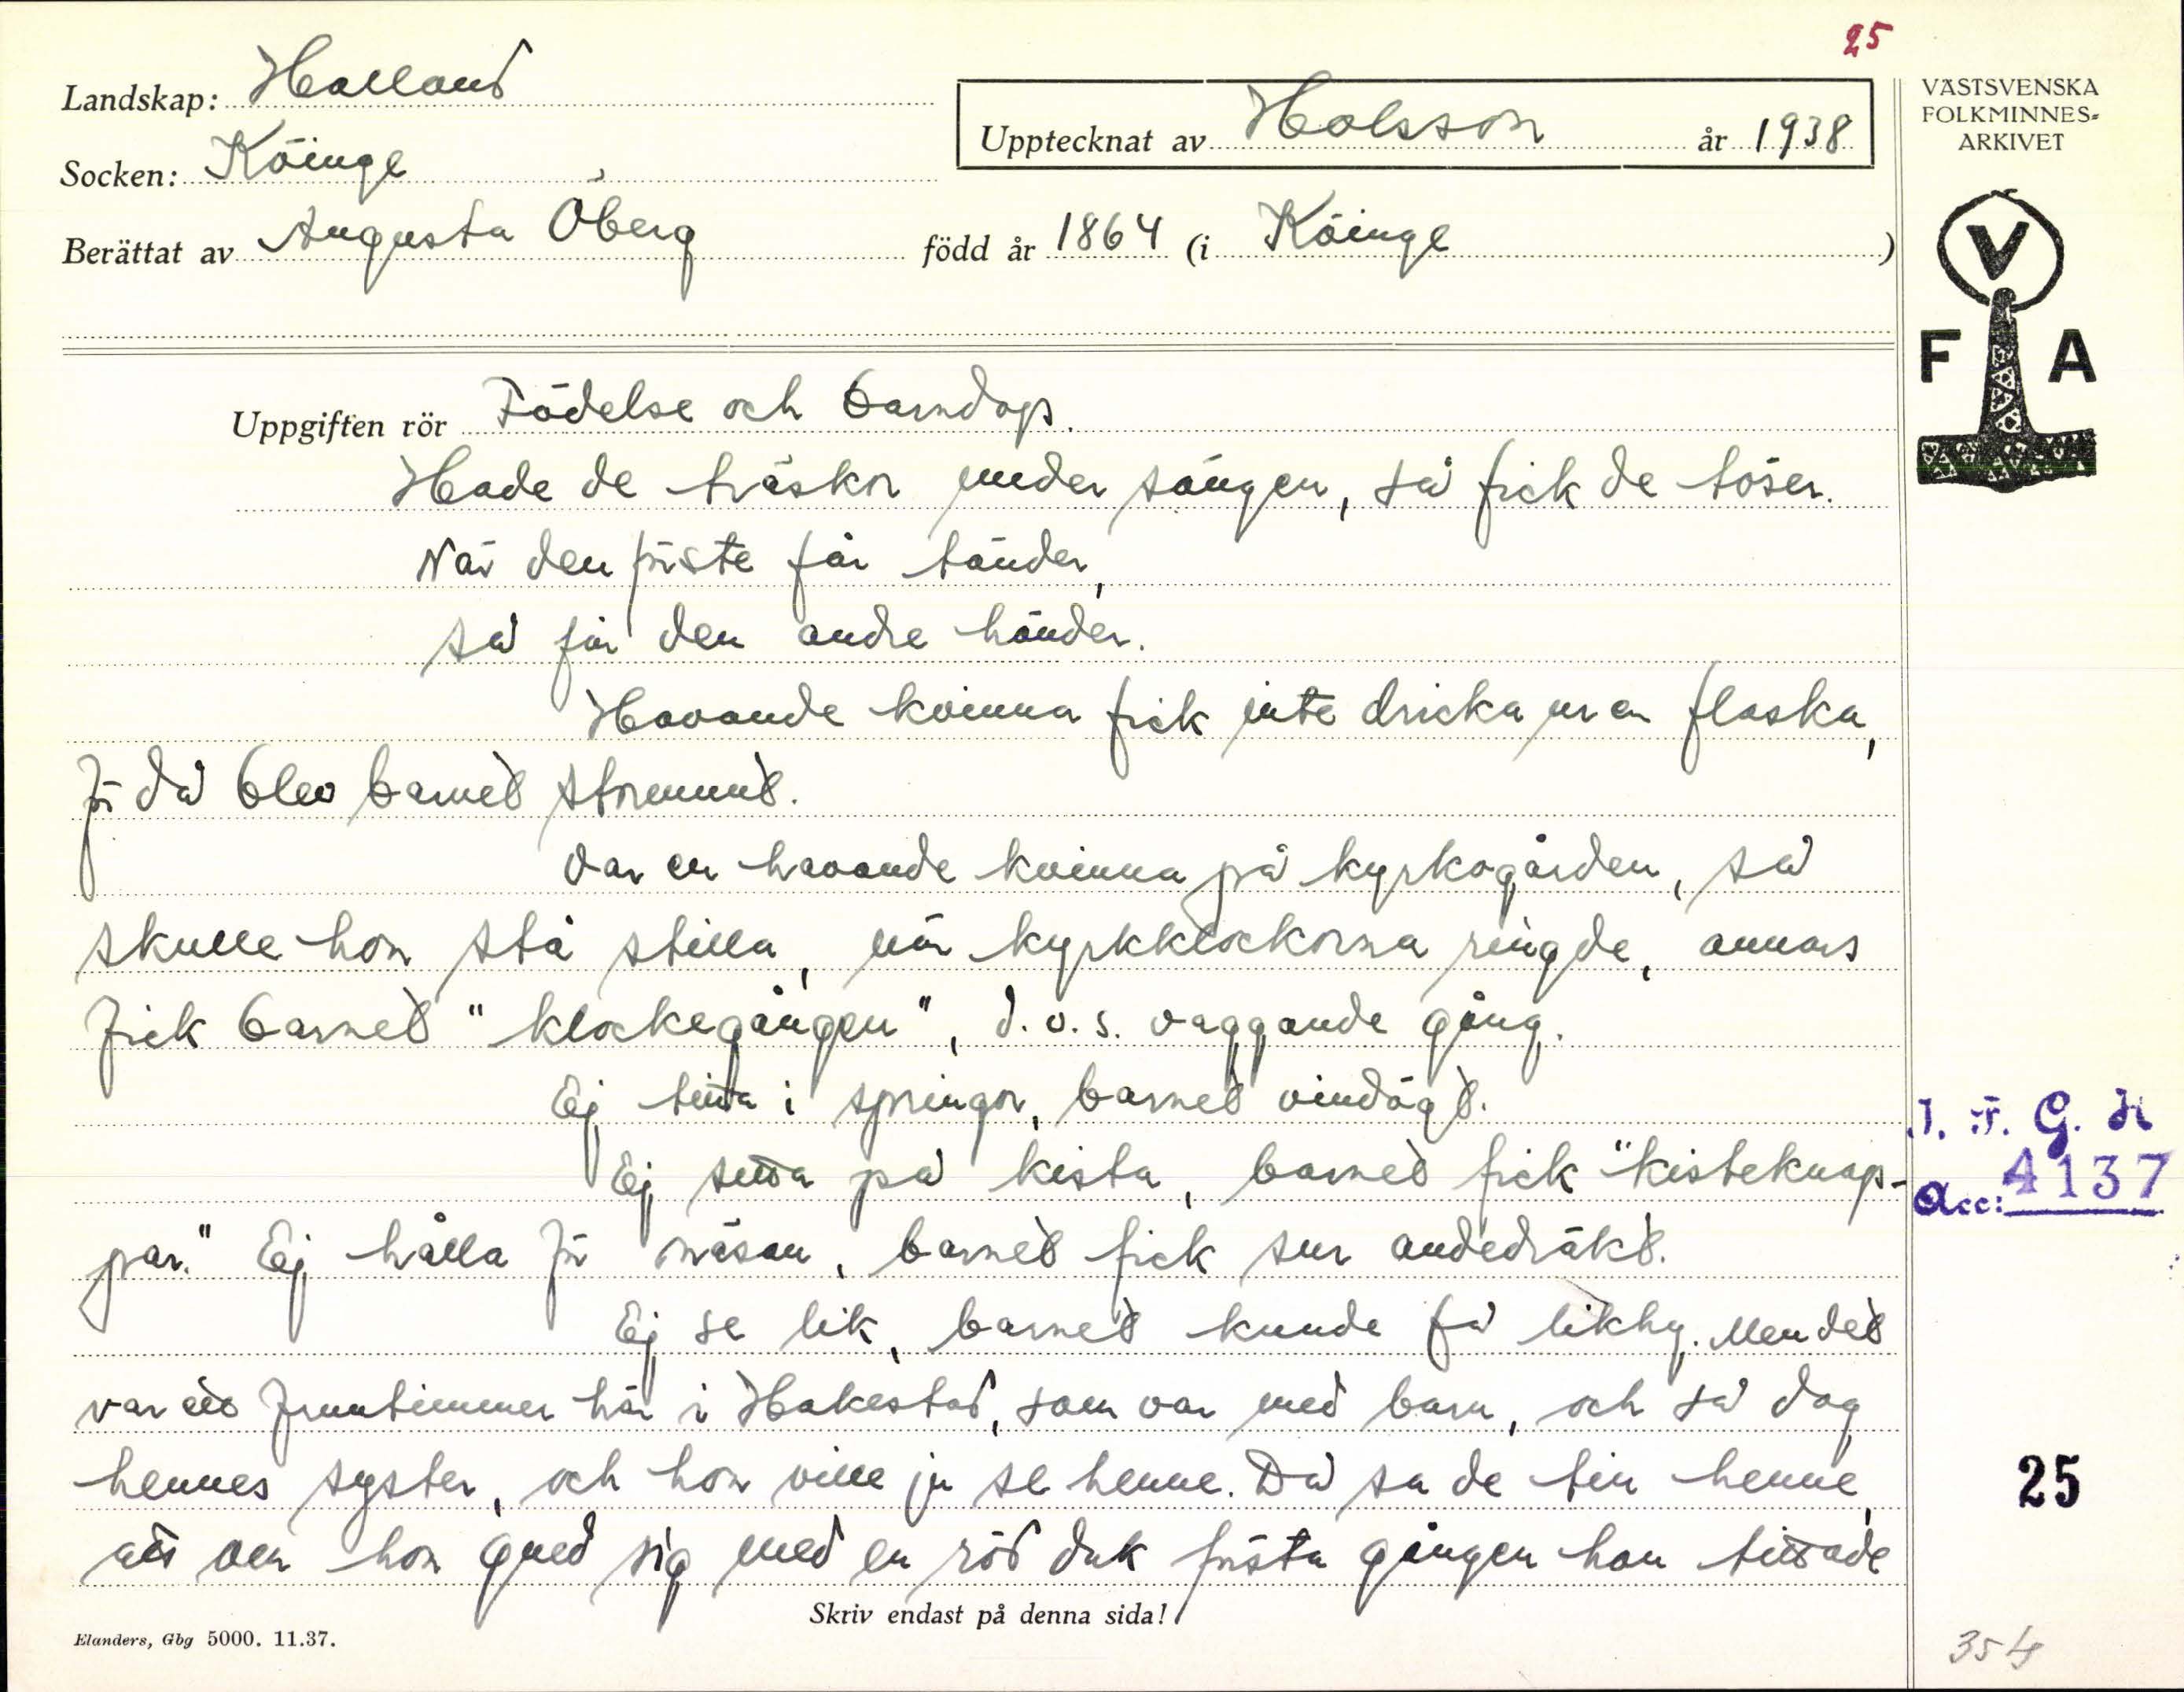 25
Landskap: Halland
Upptecknat av Holsson år 1938
VÄSTSVENSKA
FOLKMINNES-
ARKIVET
Socken: Köinge
Berättat av Augusta Öberg född år 1864 (i Köinge)
V
F A
Uppgiften rör Födelse och barndop.
Hade de träskor under sängen, så fick de töser.
När den förste får tänder,
så får den andre händer.
Havande kvinna fick inte dricka ur en flaska,
för då blev barnet stormunt.
Var en havande kvinna på kyrkogården, så
skulle hon stå stilla, när kyrkklockorna ringde, annars
fick barnet "klockegången", d.v.s. vaggande gång.
Ej titta i springor, barnet vindögt.
Ej sitta på kista, barnet fick "kisteknap-
par." Ej hålla för näsan, barnet fick sur andedräkt.
Ej se lik, barnet kunde få likhy. Men det
var ett fruntimmer här i Hakestad, som var med barn, och så dog
hennes syster, och hon ville ju se henne. Då sa de till henne,
att om hon gned sig med en röd duk första gången hon tittade
I. F. G. H
Acc: 4137
25
Skriv endast på denna sida!
Elanders, Gbg 5000. 11.37.
354